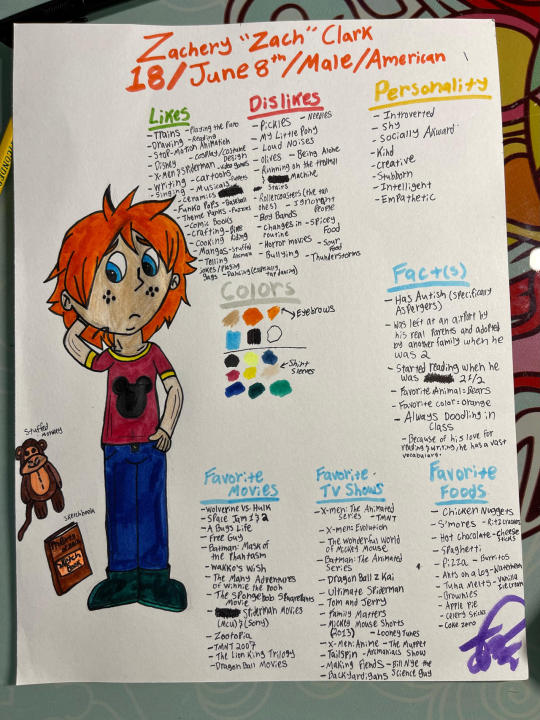 Zachery "Zach" Clark
18/June 8th/Male/American
Likes
- Trains - Playing the Piano
- Drawing - Reading
- Stop-Motion Animation
- Disney - cosplay/costume Design
- X-men & Spiderman - video games
- Writing - cartoons
- Singing - Musicals
- ceramics
- Funko Pops - Baseball
- Theme Parks - Puzzles
- Comic Books
- Crafting - Bike Riding
- Cooking
- Mangas - Stuffed Animals
- Telling Jokes/Playing Gags - Dancing (especially tap dancing)
Dislikes
- Pickles - Needles
- My Little Pony
- Loud Noises
- olives - Being Alone
- Running on the treadmill
Machine
Stairs
- Rollercoasters (the tall ones) - Ignorant People
- Boy Bands
- Changes in routine - Spicy Food
- Horror movies - Sour Food
- Bullying - Thunderstorms
Personality
- Introverted
- Shy
- Socially Awkward
- Kind
- Creative
- Stubborn
- Intelligent
- Empathetic
Colors
Eyebrows
Shirt sleeves
Fact(s)
- Has Autism (specifically Aspergers)
- Was left at an airport by
his real parents and adopted
by another family when he
was 2
- Started reading when he
was 2 1/2
- Favorite Animal = Bears
- Favorite color = orange
- Always Doodling in
class
- Because of his love for
reading & writing, he has a vast
vocabulary.
Stuffed monkey
sketchbook
sketch Book
Favorite
Movies
- Wolverine vs. Hulk
- Space Jam 1 & 2
- A Bugs Life
- Free Guy
- Batman: Mask of
the Phantasm
- Wakko's Wish
- The Many Adventures
of Winnie the Pooh
- The Spongebob Squarepants
Movie
- Spiderman Movies
(MCU) & (Sony)
- Zootopia
- TMNT 2007
- The Lion King Trilogy
- Dragon Ball Movies
Favorite
TV Shows
- X-men: The Animated
Series - TMNT
- X-men: Evolution
- The Wonderful World
of Mickey Mouse
- Batman: The Animated
Series
- Dragon Ball Z Kai
- Ultimate Spiderman
- Tom and Jerry
- Family Matters
- Mickey Mouse Shorts
(2013) - Looney Tunes
- X-men: Anime - The Muppet Show
- Tailspin - Animaniacs
- Making Fiends - Bill Nye the Science Guy
- Backyardigans
Favorite
Foods
- Chicken Nuggets
- S'mores - Ritz crackers
- Hot chocolate - cheese sticks
- Spaghetti
- Pizza - Burritos
- Ants on a Log - Watermelon
- Tuna Melts - Vanilla Ice cream
- Brownies
- Apple Pie
- Celery Sticks
- Coke zero